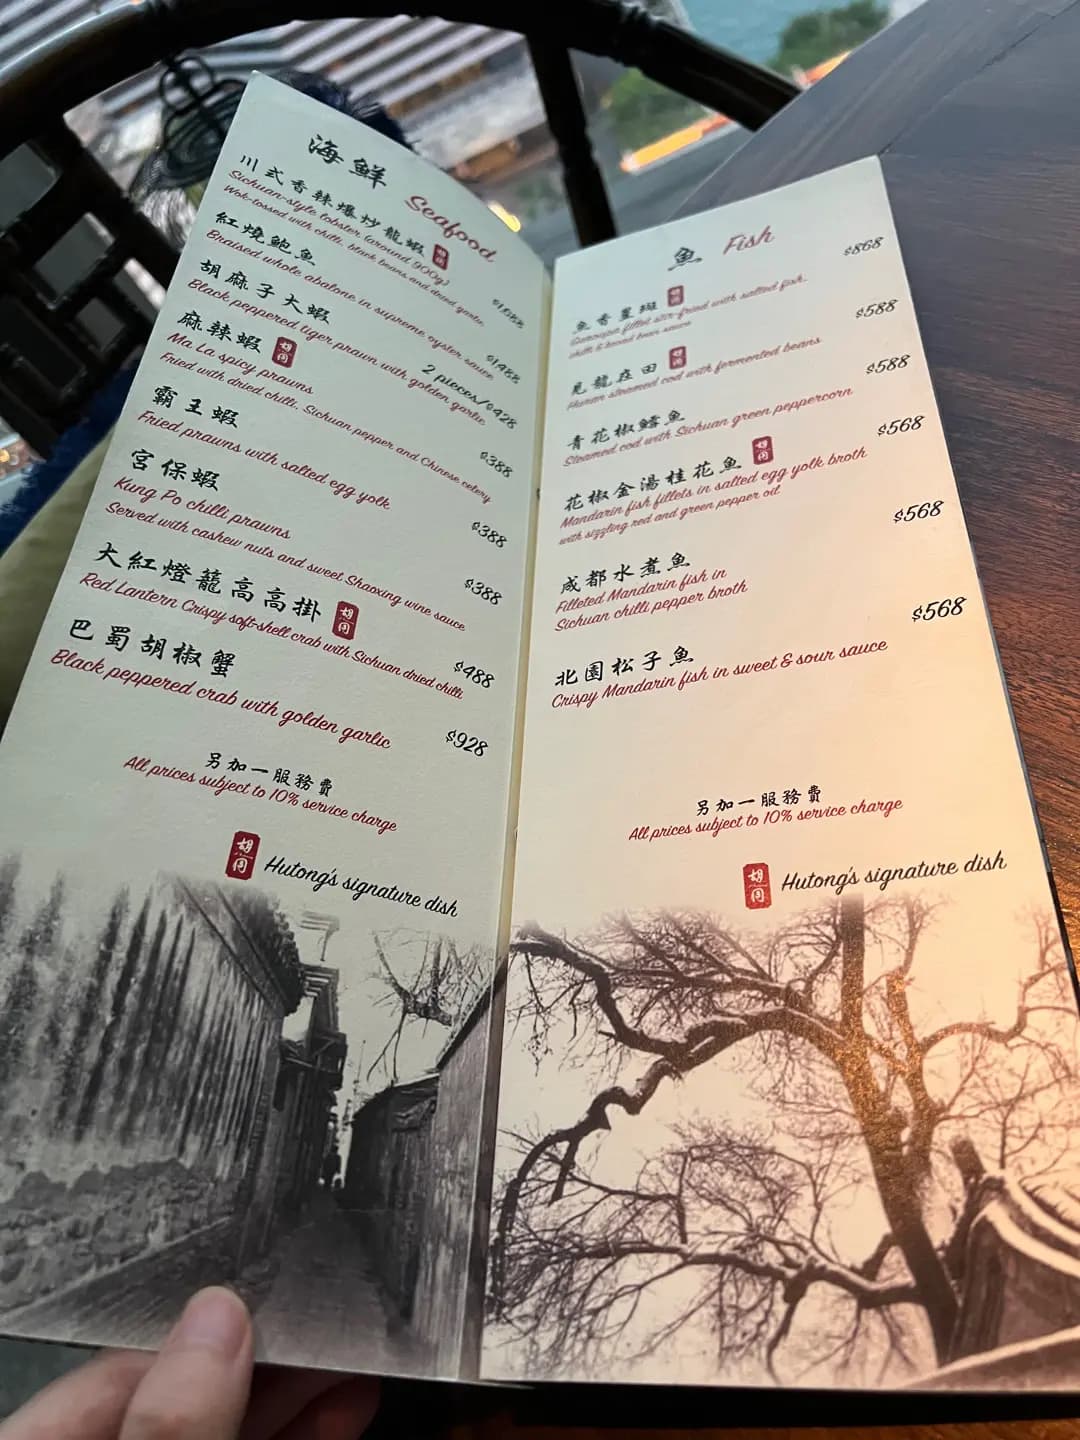 海鮮 Seafood
川式香辣爆炒龍蝦 胡同
Sichuan-style lobster (around 900g)
Wok-tossed with chilli, black beans and dried garlic
$1,088
紅燒鮑魚
Braised whole abalone in supreme oyster sauce
$1,488
胡麻子大蝦
Black peppered tiger prawn with golden garlic
2 pieces/$428
麻辣蝦 胡同
Ma La spicy prawns
Fried with dried chilli, Sichuan pepper and Chinese celery
$388
霸王蝦
Fried prawns with salted egg yolk
$388
宮保蝦
Kung Po chilli prawns
Served with cashew nuts and sweet Shaoxing wine sauce
$388
大紅燈籠高高掛 胡同
Red Lantern Crispy soft-shell crab with Sichuan dried chilli
$488
巴蜀胡椒蟹
Black peppered crab with golden garlic
$928
另加一服務費
All prices subject to 10% service charge
胡同 Hutong's signature dish
魚 Fish
$868
魚香星斑 胡同
Garoupa fillet stir-fried with salted fish,
chilli & broad bean sauce
$588
見龍在田 胡同
Hunan steamed cod with fermented beans
$588
青花椒鱈魚
Steamed cod with Sichuan green peppercorn
$568
花椒金湯桂花魚 胡同
Mandarin fish fillets in salted egg yolk broth
with sizzling red and green pepper oil
$568
成都水煮魚
Filleted Mandarin fish in
Sichuan chilli pepper broth
$568
北園松子魚
Crispy Mandarin fish in sweet & sour sauce
另加一服務費
All prices subject to 10% service charge
胡同 Hutong's signature dish